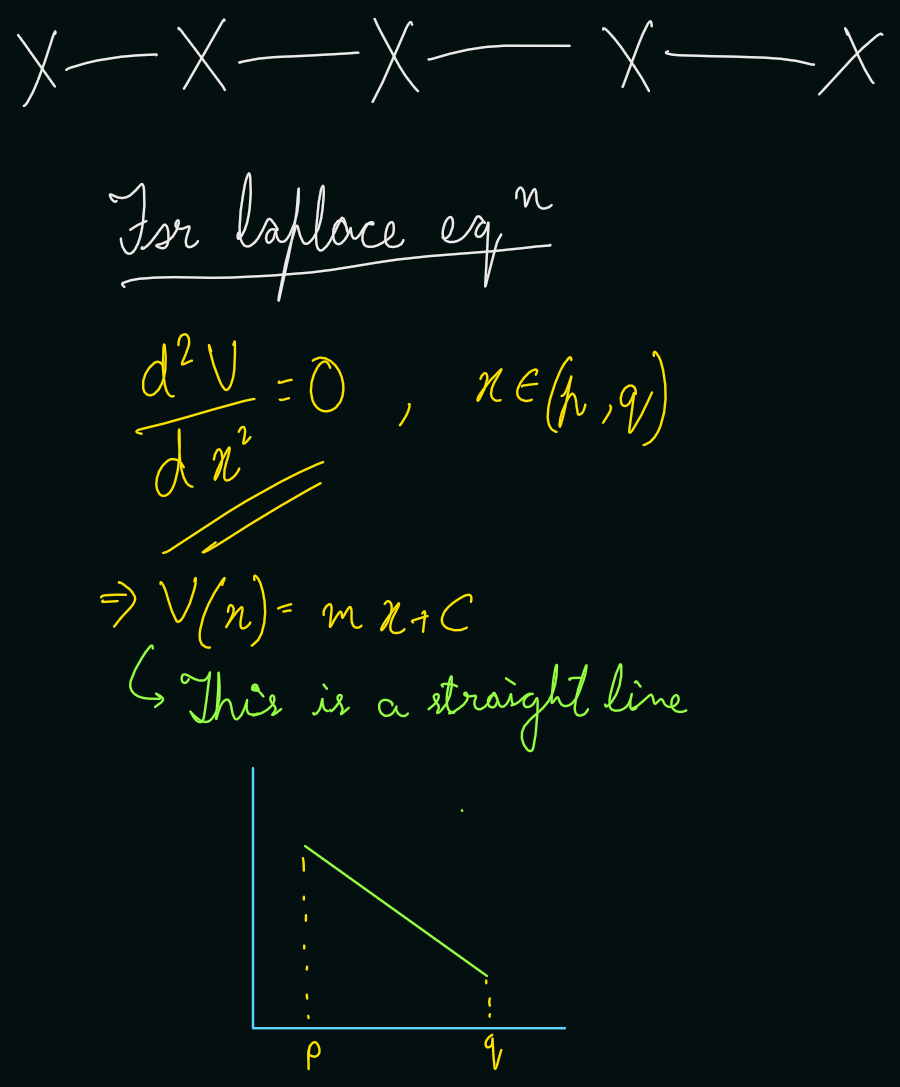 X — X — X — X — X
For laplace eqⁿ
d²V/dx² = 0 , x ∈ (p, q)
⇒ V(x) = mx + C
This is a straight line
p q